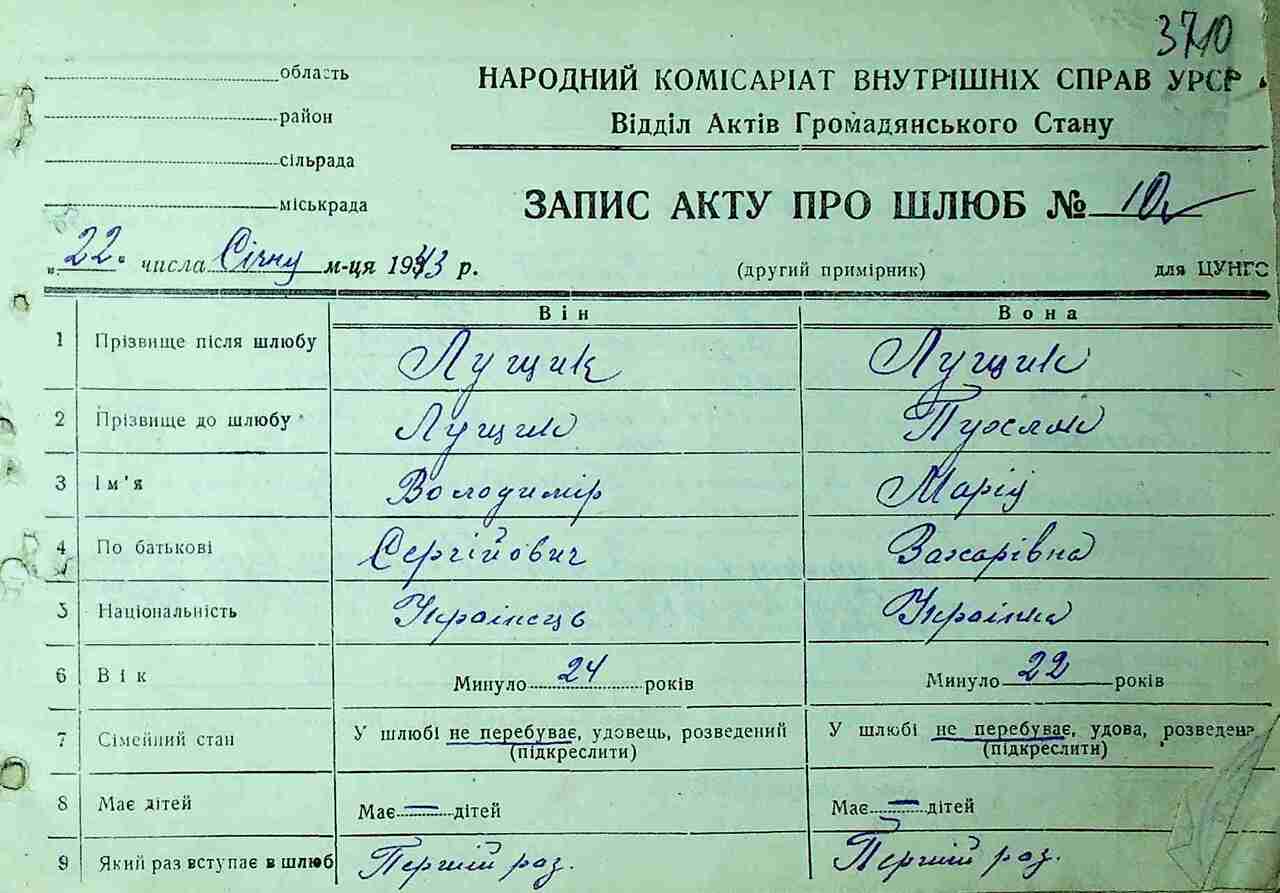 3710
область
район
сільрада
міськрада
НАРОДНИЙ КОМІСАРІАТ ВНУТРІШНІХ СПРАВ УРСР
Відділ Актів Громадянського Стану
ЗАПИС АКТУ ПРО ШЛЮБ № 10
„22. числа Січня м-ця 1943 р. (другий примірник) для ЦУНГС
Він Вона
1 Прізвище після шлюбу Лущик Лущик
2 Прізвище до шлюбу Лущик
3 Ім'я Володимір Марія
4 По батькові Сергійович Захарівна
5 Національність Українець Українка
6 Вік Минуло 24 років Минуло 22 років
7 Сімейний стан У шлюбі не перебуває, удовець, розведений (підкреслити) У шлюбі не перебуває, удова, розведена (підкреслити)
8 Має дітей Має — дітей Має — дітей
9 Який раз вступає в шлюб Перший раз. Перший раз.